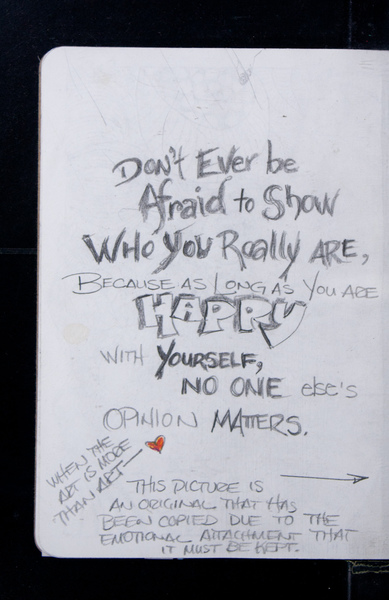 Don't Ever be
Afraid to Show
Who You Really ARE,
BECAUSE AS LONG AS YOU ARE
HAPPY
WITH YOURSELF,
NO ONE else's
OPINION MATTERS.
WHEN THE
ART IS MORE
THAN ART
THIS PICTURE IS
AN ORIGINAL THAT HAS
BEEN COPIED DUE TO THE
EMOTIONAL ATTACHMENT THAT
IT MUST BE KEPT.